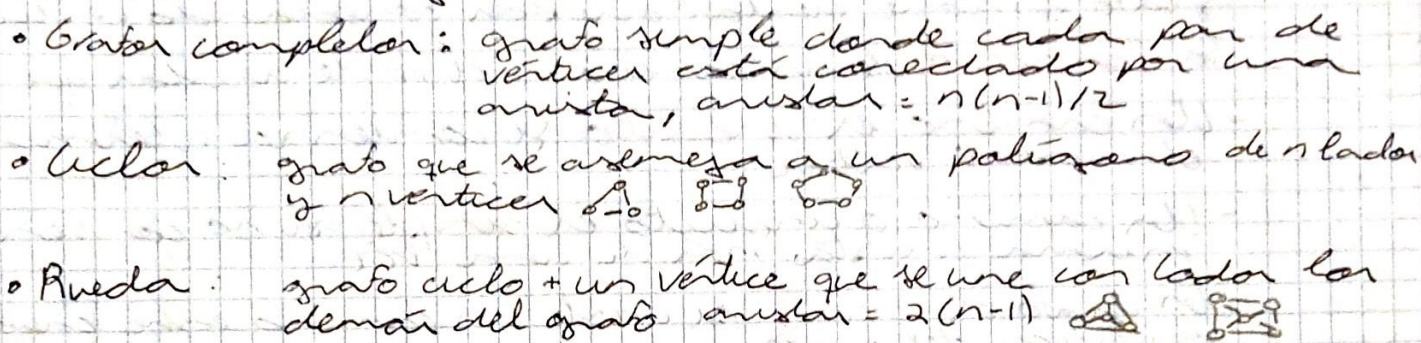 • Grafos completos: grafo simple donde cada par de
vértices está conectado por una
arista, aristas = n(n-1)/2
• Ciclos: grafo que se asemeja a un polígono de n lados
y n vértices
• Rueda: grafo ciclo + un vértice que se une con todos los
demás del grafo aristas = 2(n-1)